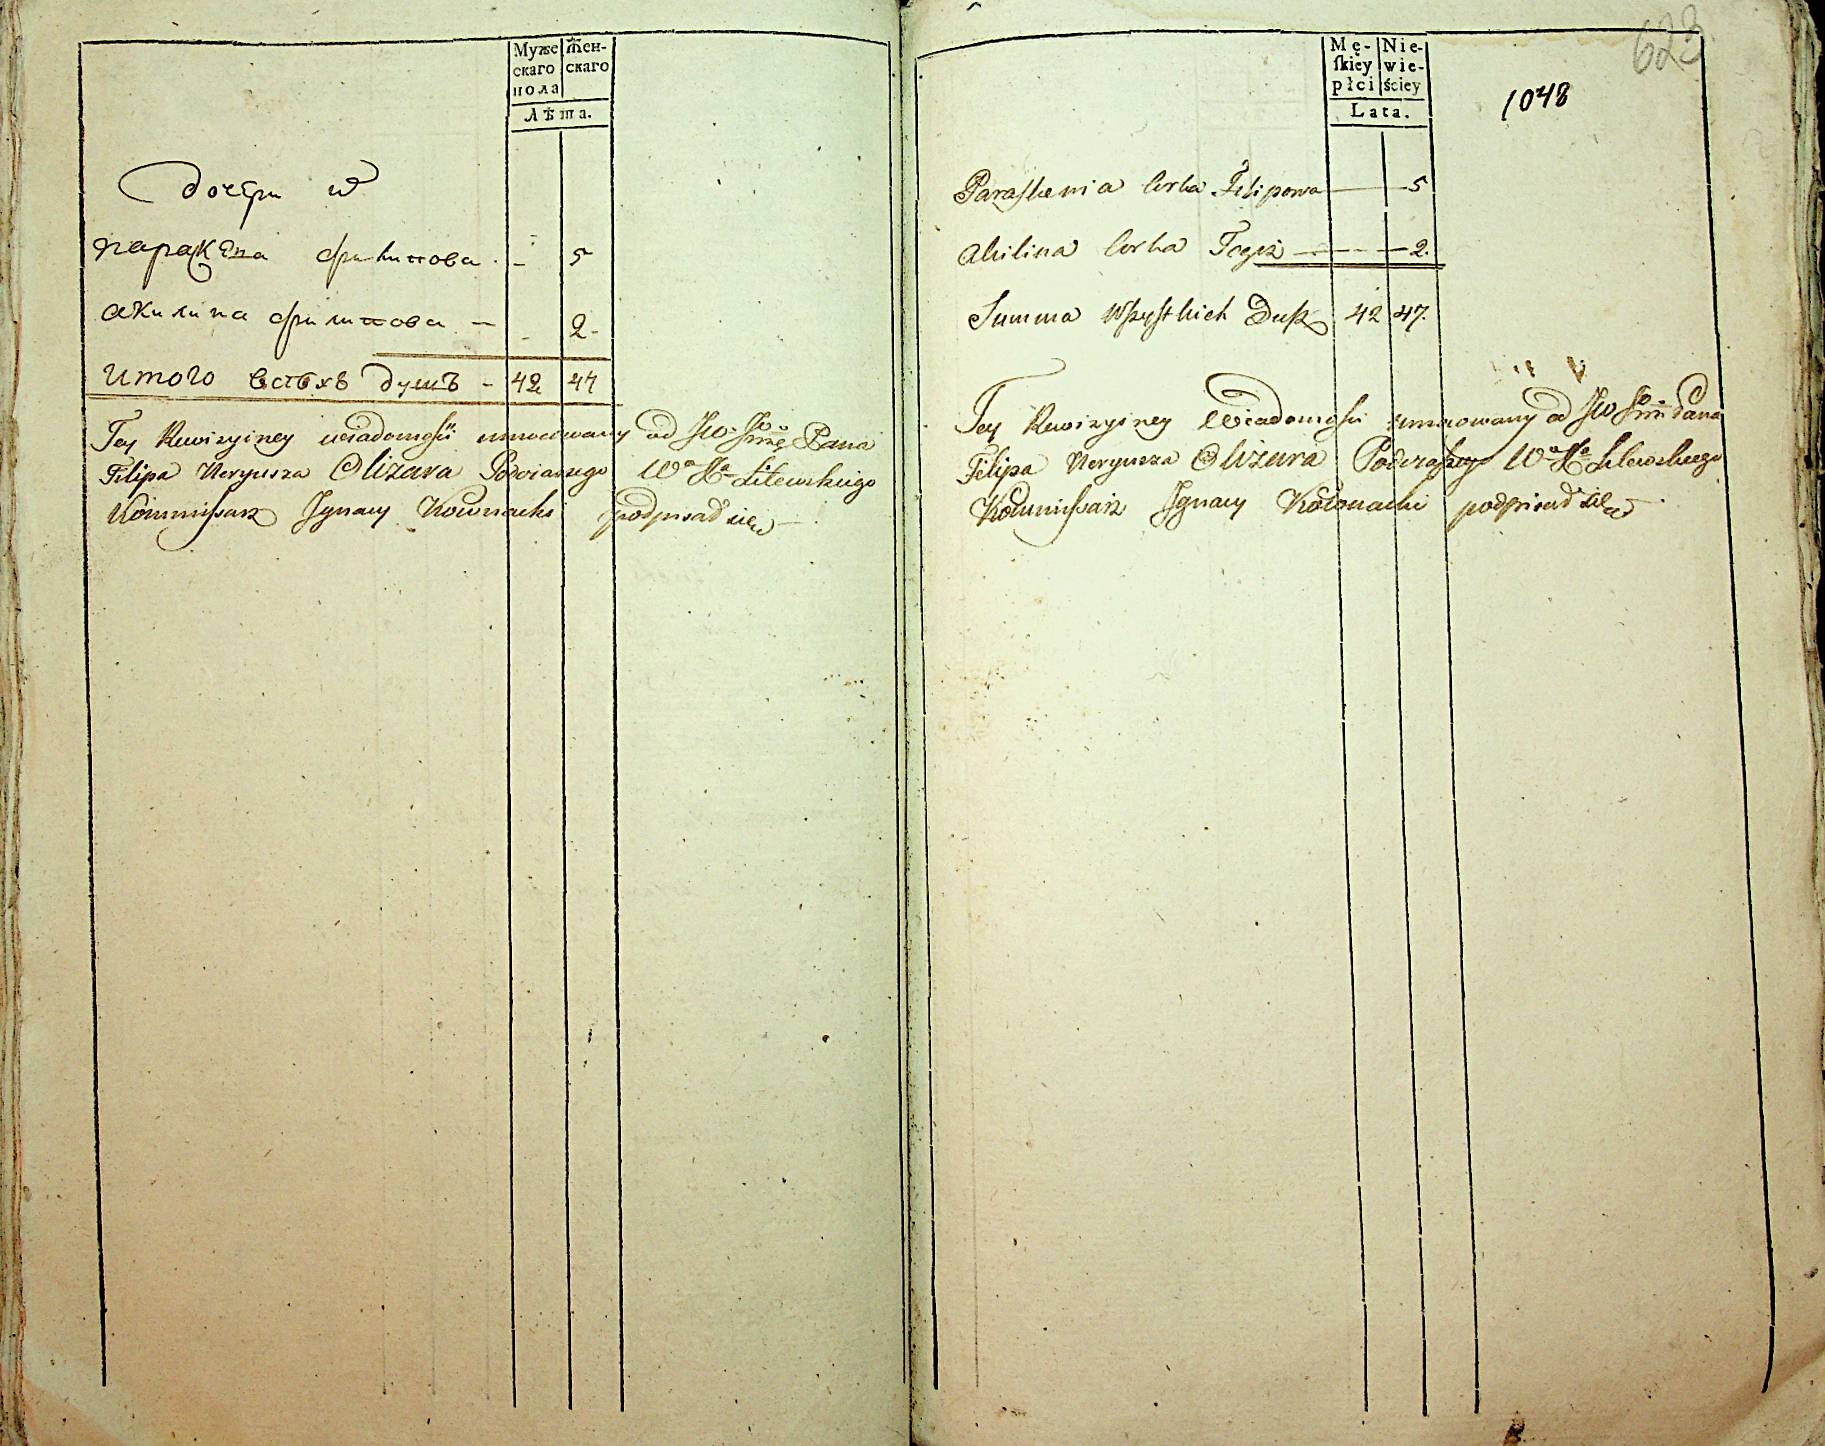 Муже женскаго
скаго
пола
Лѣта.
дочери
параскева филипова - - 5
акилина филипова - - 2-
итого всѣхъ душъ - 42 47
Tey Rewizyiney wiadomości umocowany od JW Jmć Pana
Filipa Neryusza Olizara Podczaszego Wo Xa Litewskiego
Kommissarz Ignacy Kownacki podpisał się
Mę- Nie-
skiey wie-
płci ściey
Lata.
623
1048
Paraskewia Corka Filipowa 5
Akilina Corka Tegoż 2.
Summa Wszystkich Dusz 42 47.
Tey Rewizyiney Wiadomości umocowany od JW Jmć Pana
Filipa Neryusza Olizara Podczaszego Wo Xa Litewskiego
Kommissarz Ignacy Kownacki podpisał się